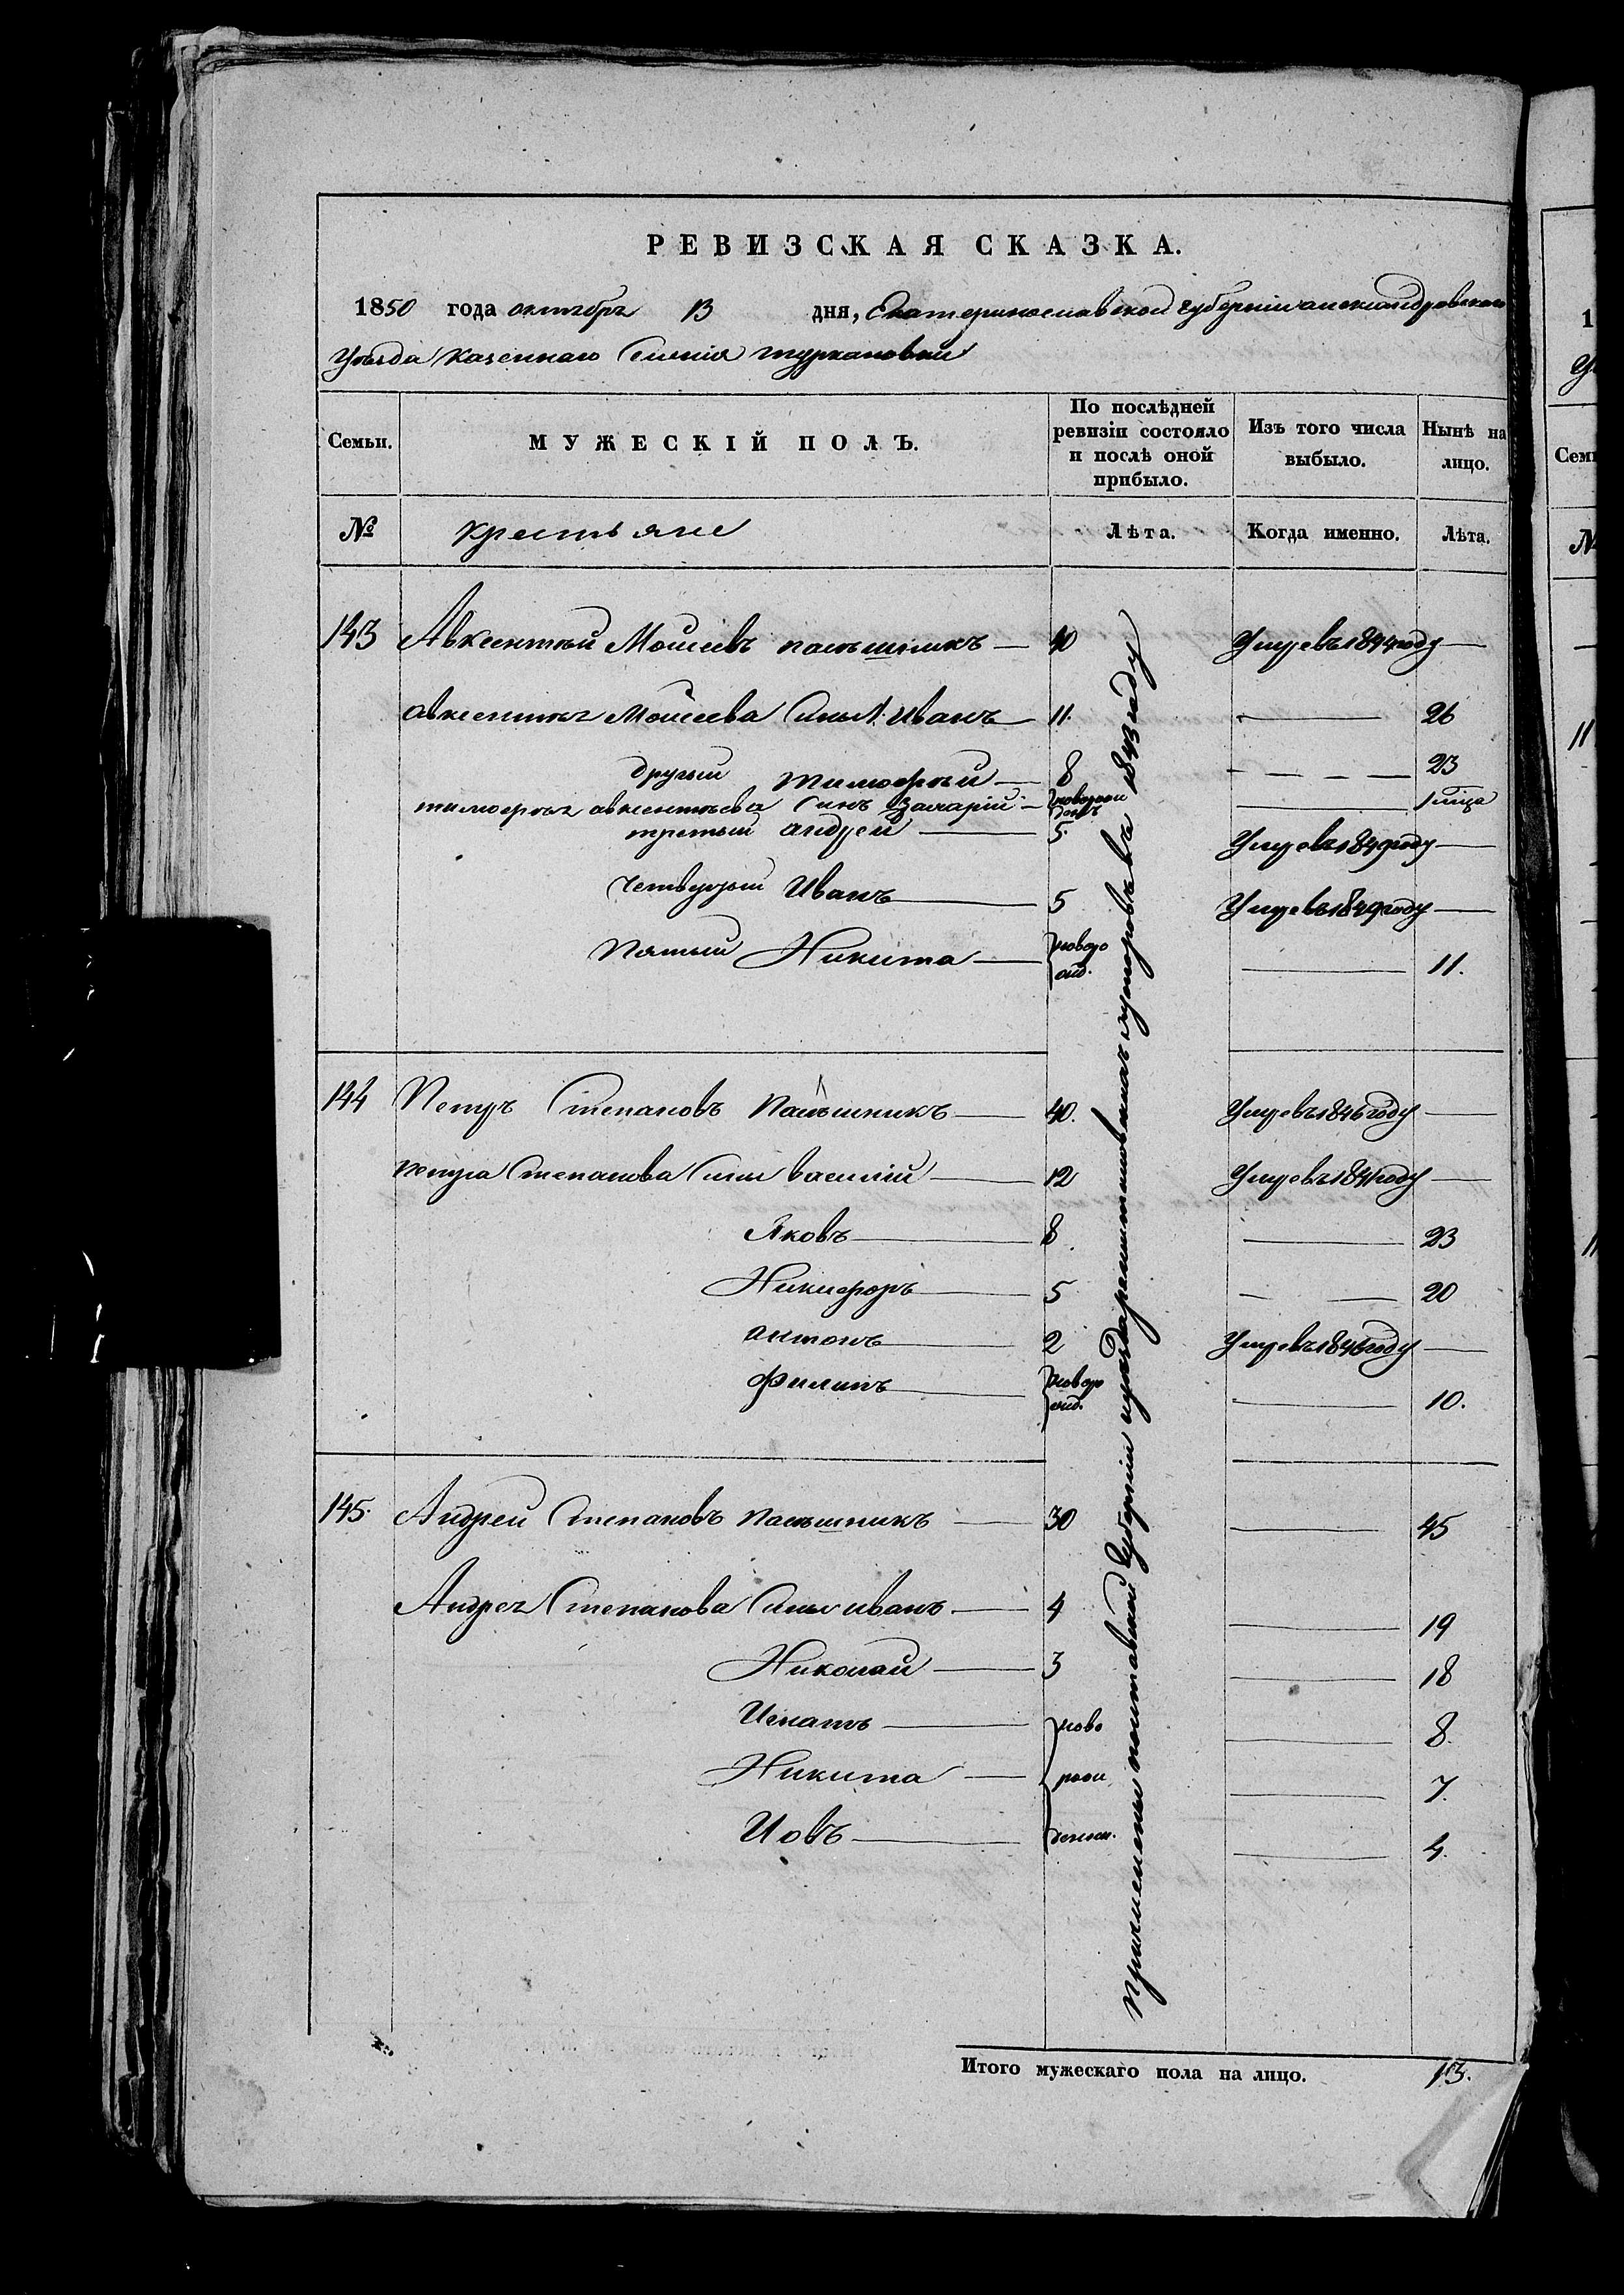 РЕВИЗСКАЯ СКАЗКА.
1850 года октября 13 дня, Екатеринославской губерніи александровского
Уезда Казеннаго Селенія туркановки
Семьи.
МУЖЕСКІЙ ПОЛЪ.
По послѣдней ревизіи состояло и послѣ оной прибыло.
Изъ того числа выбыло.
Нынѣ на лицо.
№ крестьяне Лѣта. Когда именно. Лѣта.
143 Авксентій Моисеевъ — 40 Умре въ 1844 году —
авксентья Моисеева Сыны 1. Иванъ — 11. — 26
другий тимофѣй — 8 — 23
тимофея авксентьева Сынъ Захарій — новорожденъ — 1 міца
третий андрей — 5. Умре въ 1849 году —
Четвертый Иванъ — 5 Умре въ 1849 году —
Пятый Никита — новорожд. — 11.
144 Петръ Степановъ — 40. Умре въ 1846 году —
петра Степанова Сыны василій — 12 Умре въ 1841 году —
Яковъ — 8. — 23
Никифоръ — 5 — 20
антонъ — 2 Умре въ 1846 году —
филипъ — — 10.
145. Андрей Степановъ — 30 — 45
Андрея Степанова Сыны иванъ — 4 — 19
Николай — 3 — 18
Игнатъ — ново — 8.
Никита — рож — 7.
Иовъ — — 4.
причислены полтавской Губерніи изъ въ 1843 году
Итого мужескаго пола на лицо. 13.